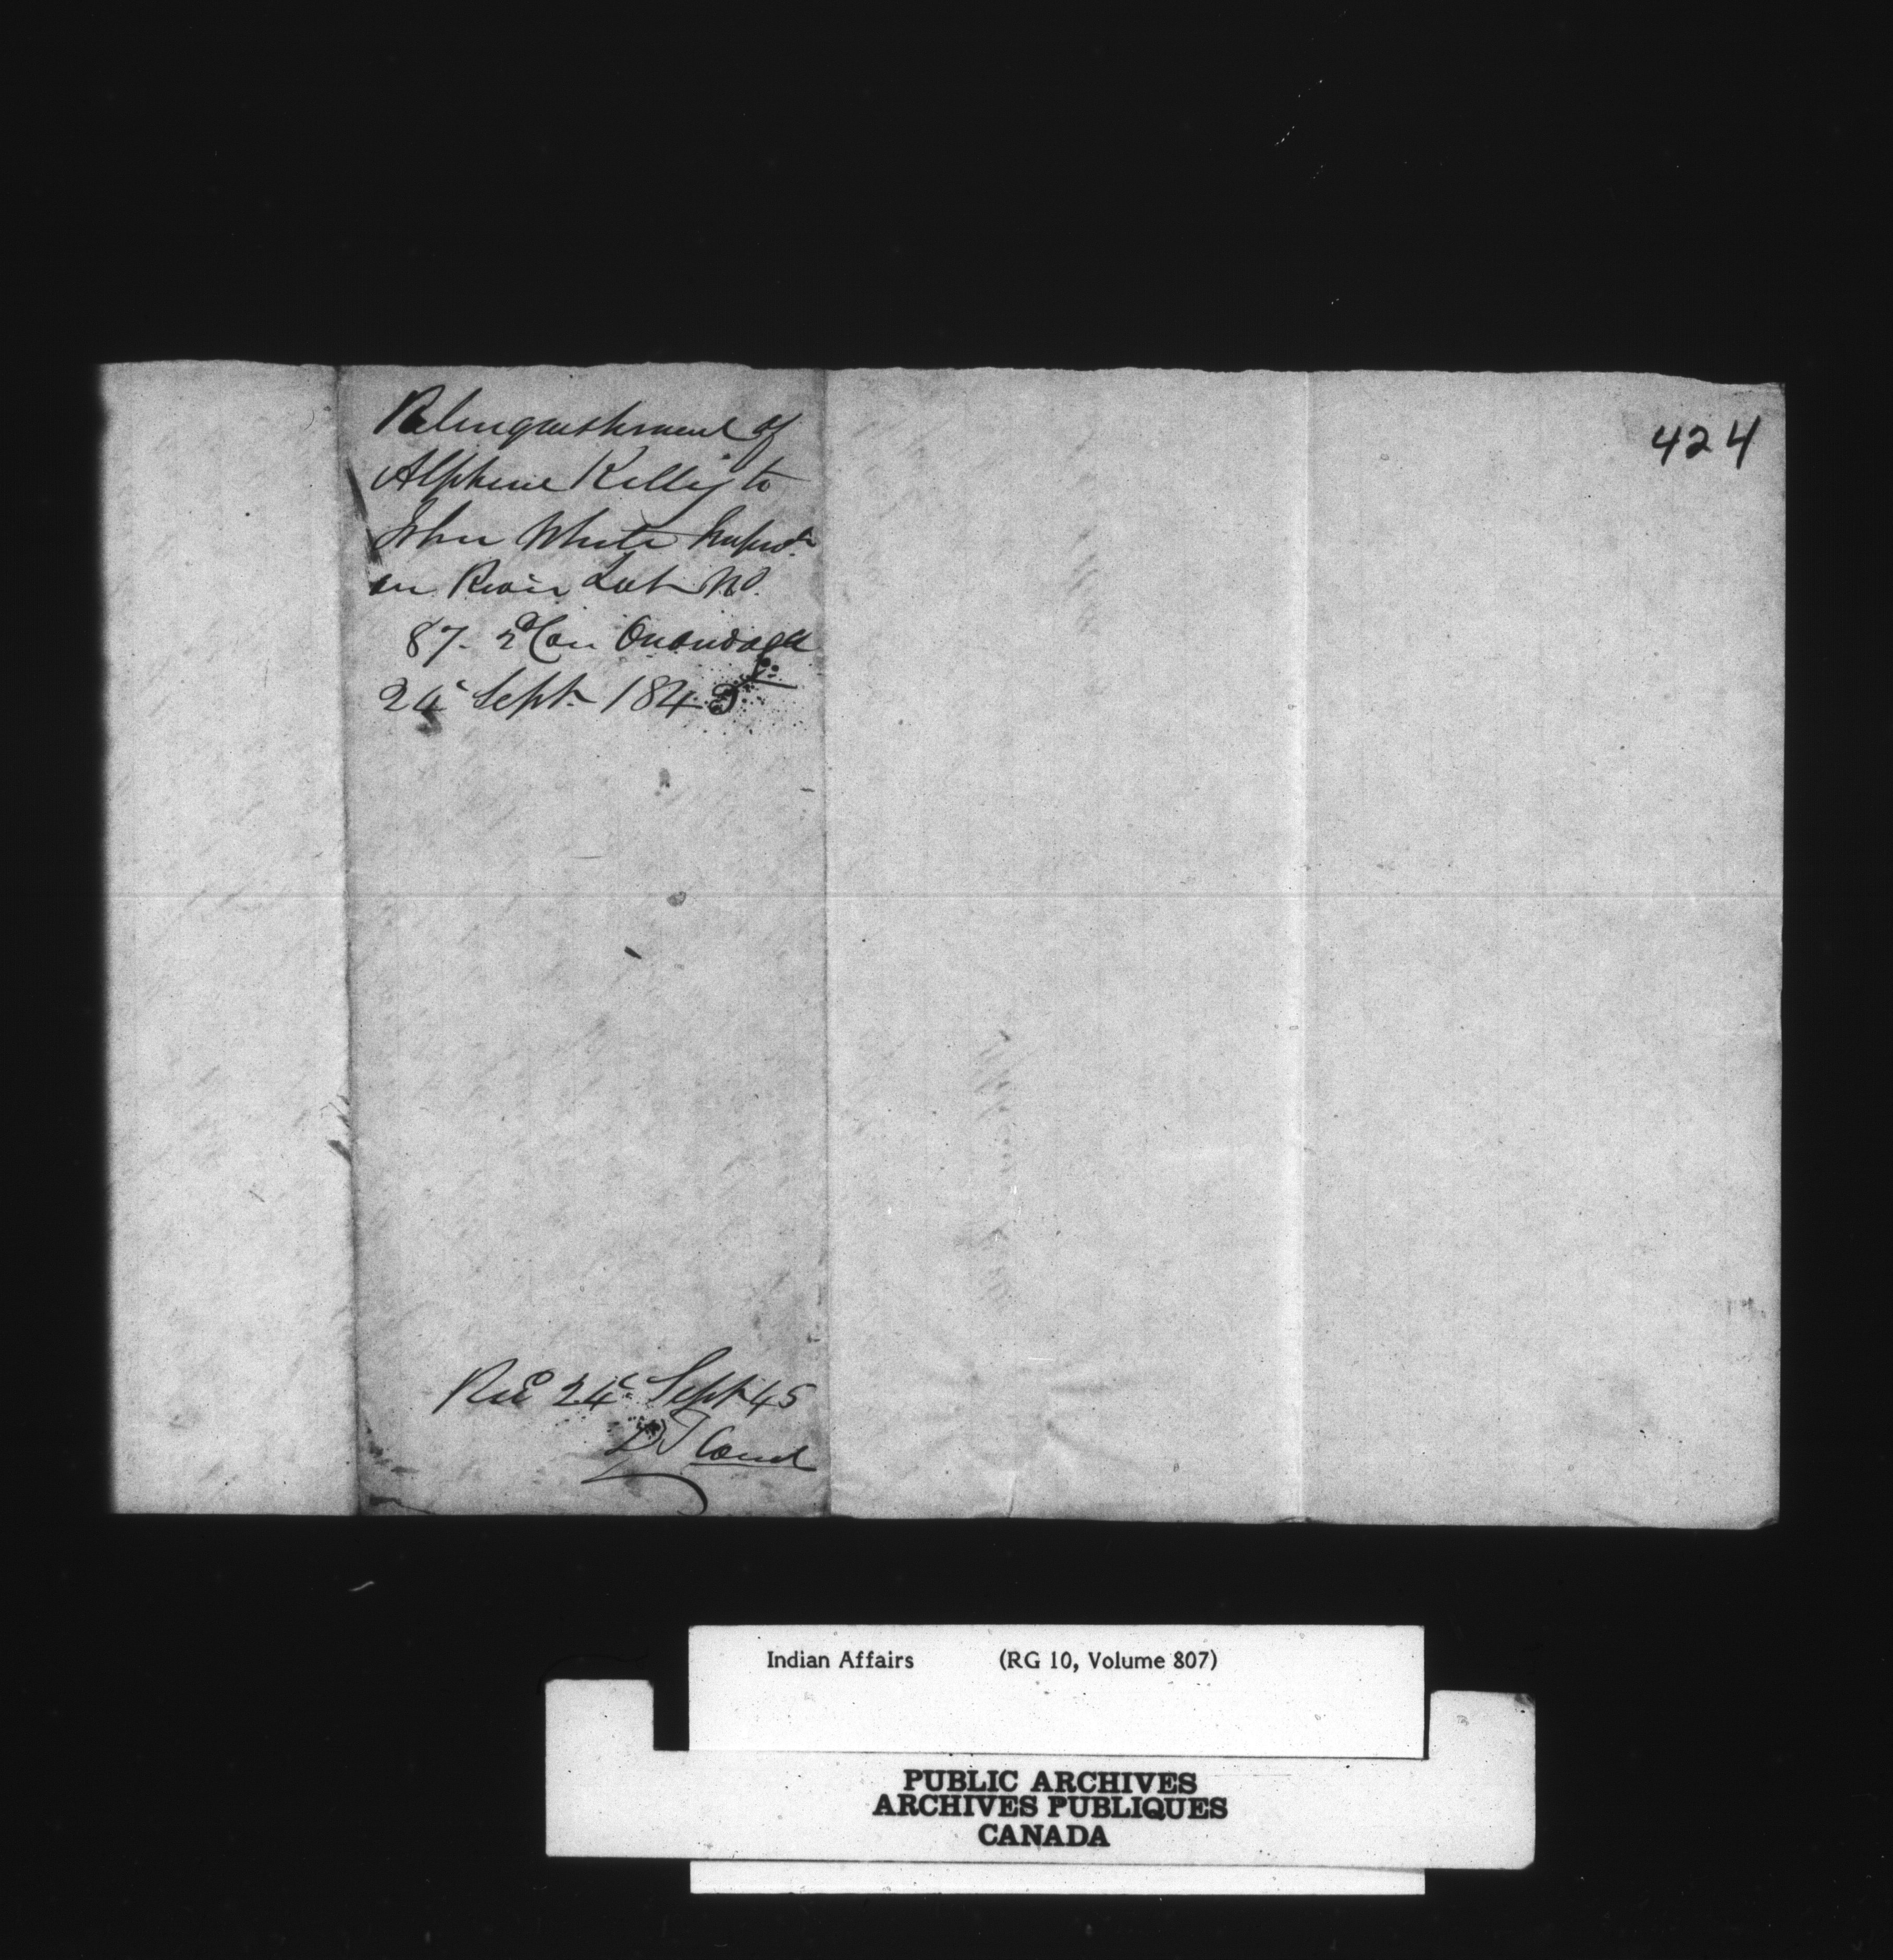 424
Relinquishment of
Alpheus Kellis to
John White Improts
on River Lot No.
87. 2d Con Onondaga
24 Septr 1845
Recd 24th Sept 45
D
Indian Affairs (RG 10, Volume 807)
PUBLIC ARCHIVES
ARCHIVES PUBLIQUES
CANADA